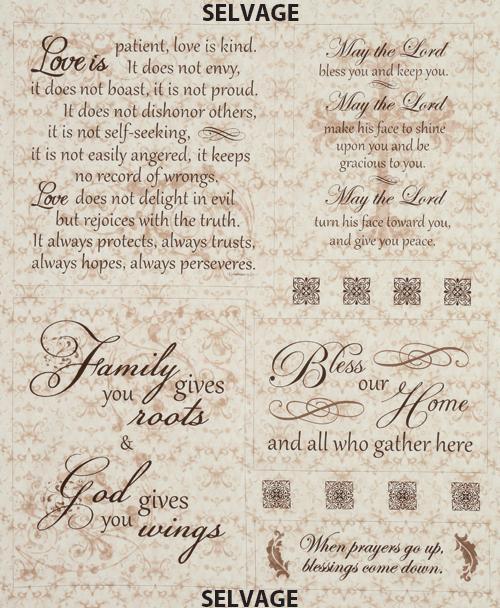 SELVAGE
Love is patient, love is kind.
It does not envy,
it does not boast, it is not proud.
It does not dishonor others,
it is not self-seeking,
it is not easily angered, it keeps
no record of wrongs.
Love does not delight in evil
but rejoices with the truth.
It always protects, always trusts,
always hopes, always perseveres.
May the Lord
bless you and keep you.
May the Lord
make his face to shine
upon you and be
gracious to you.
May the Lord
turn his face toward you,
and give you peace.
Family
you gives
roots
&
God gives
you wings
Bless
our
Home
and all who gather here
When prayers go up,
blessings come down.
SELVAGE